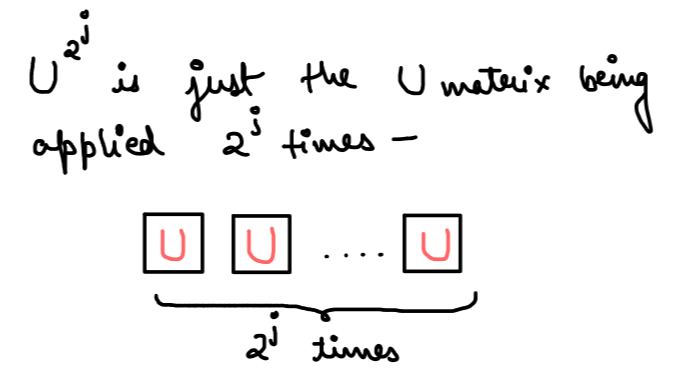 U^2^j is just the U matrix being
applied 2^j times –
U U .... U
2^j times